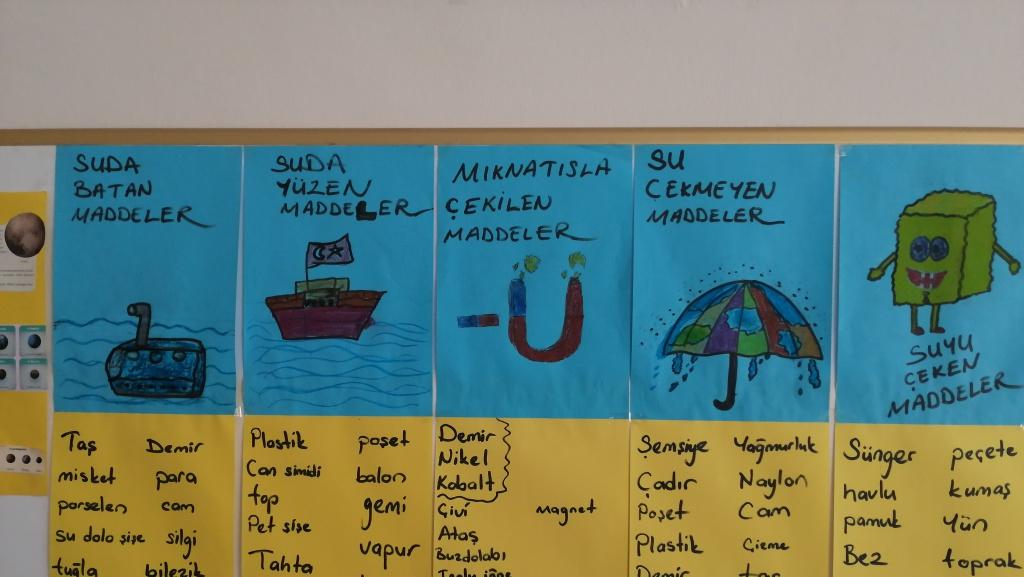 SUDA
BATAN
MADDELER
Taş Demir
misket para
porselen cam
su dolo şişe silgi
tuğla bilezik
SUDA
YÜZEN
MADDELER
Plastik poşet
Can simidi balon
top gemi
Pet şişe
Tahta vapur
MIKNATISLA
ÇEKİLEN
MADDELER
Demir
Nikel
Kobalt
Çivi magnet
Ataş
Buzdolabı
SU
ÇEKMEYEN
MADDELER
Şemsiye Yağmurluk
Çadır Naylon
Poşet Cam
Plastik Çizme
Demir
SUYU
ÇEKEN
MADDELER
Sünger peçete
havlu kumaş
pamuk Yün
Bez toprak